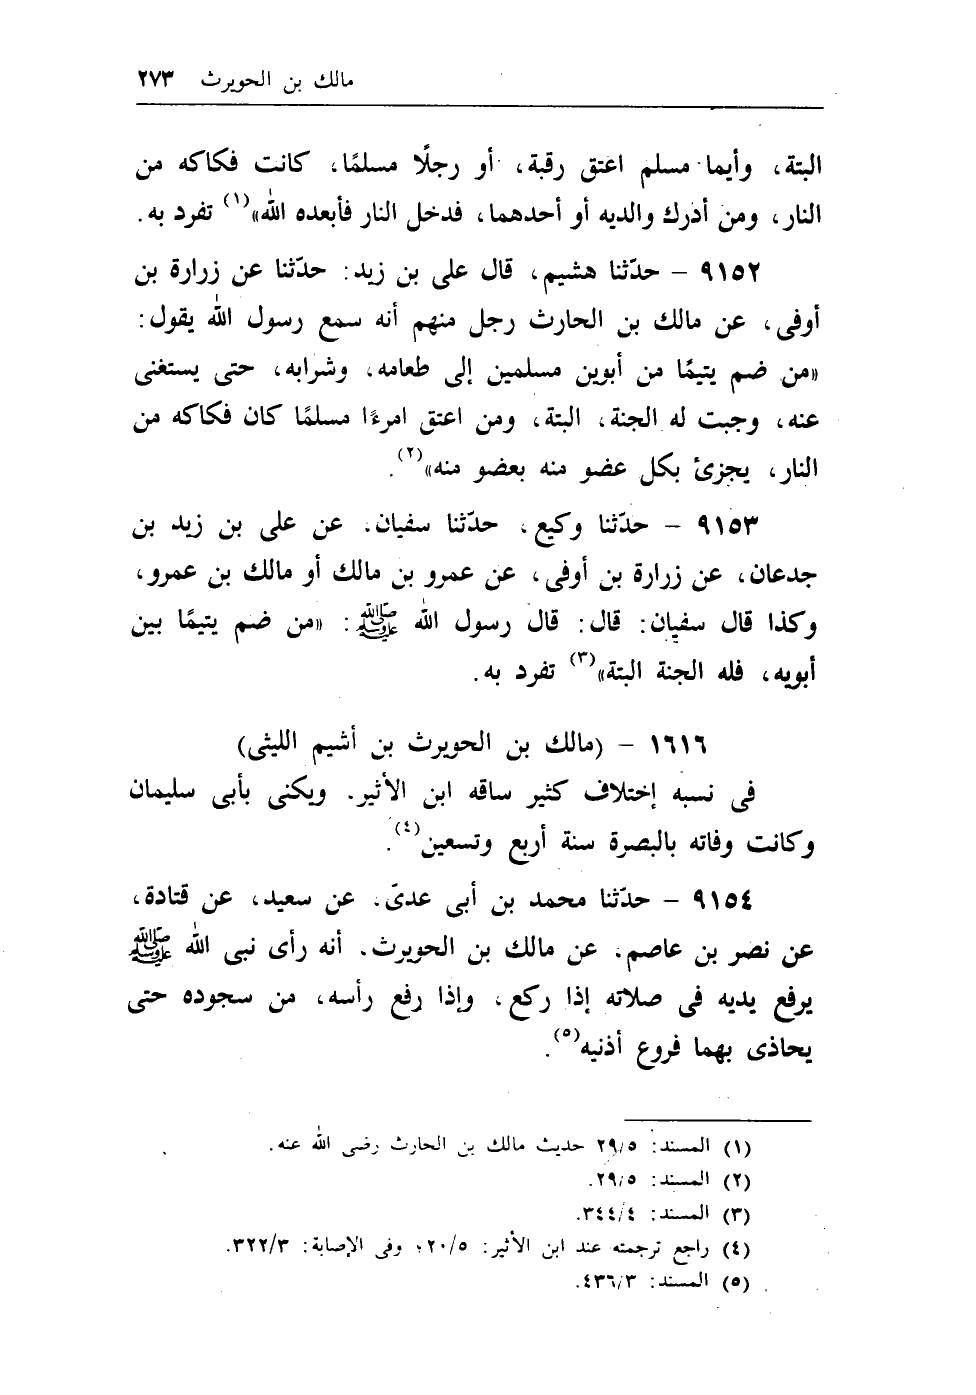 مالك بن الحويرث ٢٧٣
البتة، وأيما مسلم اعتق رقبة، أو رجلًا مسلمًا، كانت فكاكه من
النار، ومن أدرك والديه أو أحدهما، فدخل النار فأبعده الله»(١) تفرد به.
٩١٥٢ – حدّثنا هشيم، قال على بن زيد: حدّثنا عن زرارة بن
أوفى، عن مالك بن الحارث رجل منهم أنه سمع رسول الله يقول:
«من ضم يتيمًا من أبوين مسلمين إلى طعامه، وشرابه، حتى يستغنى
عنه، وجبت له الجنة، البتة، ومن اعتق امرءًا مسلمًا كان فكاكه من
النار، يجزئ بكل عضو منه بعضو منه»(٢).
٩١٥٣ – حدّثنا وكيع، حدّثنا سفيان، عن على بن زيد بن
جدعان، عن زرارة بن أوفى، عن عمرو بن مالك أو مالك بن عمرو،
وكذا قال سفيان: قال: قال رسول الله ﷺ: «من ضم يتيمًا بين
أبويه، فله الجنة البتة»(٣) تفرد به.
١٦١٦ – (مالك بن الحويرث بن أشيم الليثى)
فى نسبه إختلاف كثير ساقه ابن الأثير. ويكنى بأبى سليمان
وكانت وفاته بالبصرة سنة أربع وتسعين(٤).
٩١٥٤ – حدّثنا محمد بن أبى عدىّ، عن سعيد، عن قتادة،
عن نصر بن عاصم، عن مالك بن الحويرث. أنه رأى نبى الله ﷺ
يرفع يديه فى صلاته إذا ركع، وإذا رفع رأسه، من سجوده حتى
يحاذى بهما فروع أذنيه(٥).
(١) المسند: ٢٩/٥ حديث مالك بن الحارث رضى الله عنه.
(٢) المسند: ٢٩/٥.
(٣) المسند: ٣٤٤/٤.
(٤) راجع ترجمته عند ابن الأثير: ٢٠/٥؛ وفى الإصابة: ٣٢٢/٣.
(٥) المسند: ٤٣٦/٣.